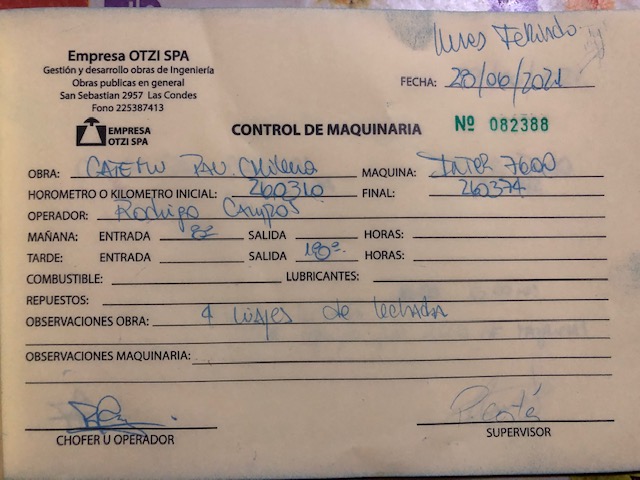 Lunes Feriado
Empresa OTZI SPA
Gestión y desarrollo obras de Ingeniería
Obras publicas en general
San Sebastián 2957 Las Condes
Fono 225387413
EMPRESA
OTZI SPA
FECHA: 28/06/2021
CONTROL DE MAQUINARIA Nº 082388
OBRA: Chilena MAQUINA: INTER 7600
HOROMETRO O KILOMETRO INICIAL: 260310 FINAL: 260374
OPERADOR: Rodrigo Campos
MAÑANA: ENTRADA 8° SALIDA HORAS:
TARDE: ENTRADA SALIDA 18°° HORAS:
COMBUSTIBLE: LUBRICANTES:
REPUESTOS:
OBSERVACIONES OBRA: 4 viajes de
OBSERVACIONES MAQUINARIA:
CHOFER U OPERADOR SUPERVISOR